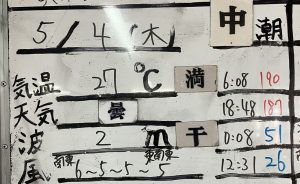 5/4(木) 中潮
気温 27℃ 満 6:08 190
天気 曇 18:48 187
波 2m 干 0:08 51
風 南東 6~5~5~5 東南東 12:31 26